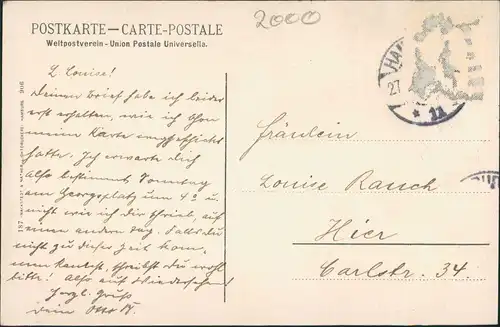 POSTKARTE — CARTE-POSTALE
Weltpostverein - Union Postale Universelle.
2000
L. Louise!
Deinen Brief habe ich leider
erst erhalten, wie ich schon
meine Karte weggeschickt
hatte. Ich erwarte Dich
also bestimmt Sonntag
am Georgsplatz um 4 u.
nicht wie ich dir schrieb, auf
einen andern Tag. Falls du
nicht zu dieser Zeit kom-
men kannst, schreibst du wohl
bitte! Also auf Wiedersehen!
Herzl. Gruß
Dein Otto
HA
27
* 1a
Fräulein
Louise Rasch
Hier
Carlstr. 34.
187
906